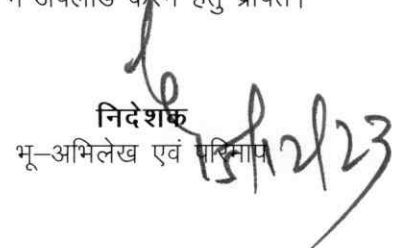 में अपलोड करने हेतु प्रेषित।
निदेशक
भू–अभिलेख एवं परिमाप
15/12/23